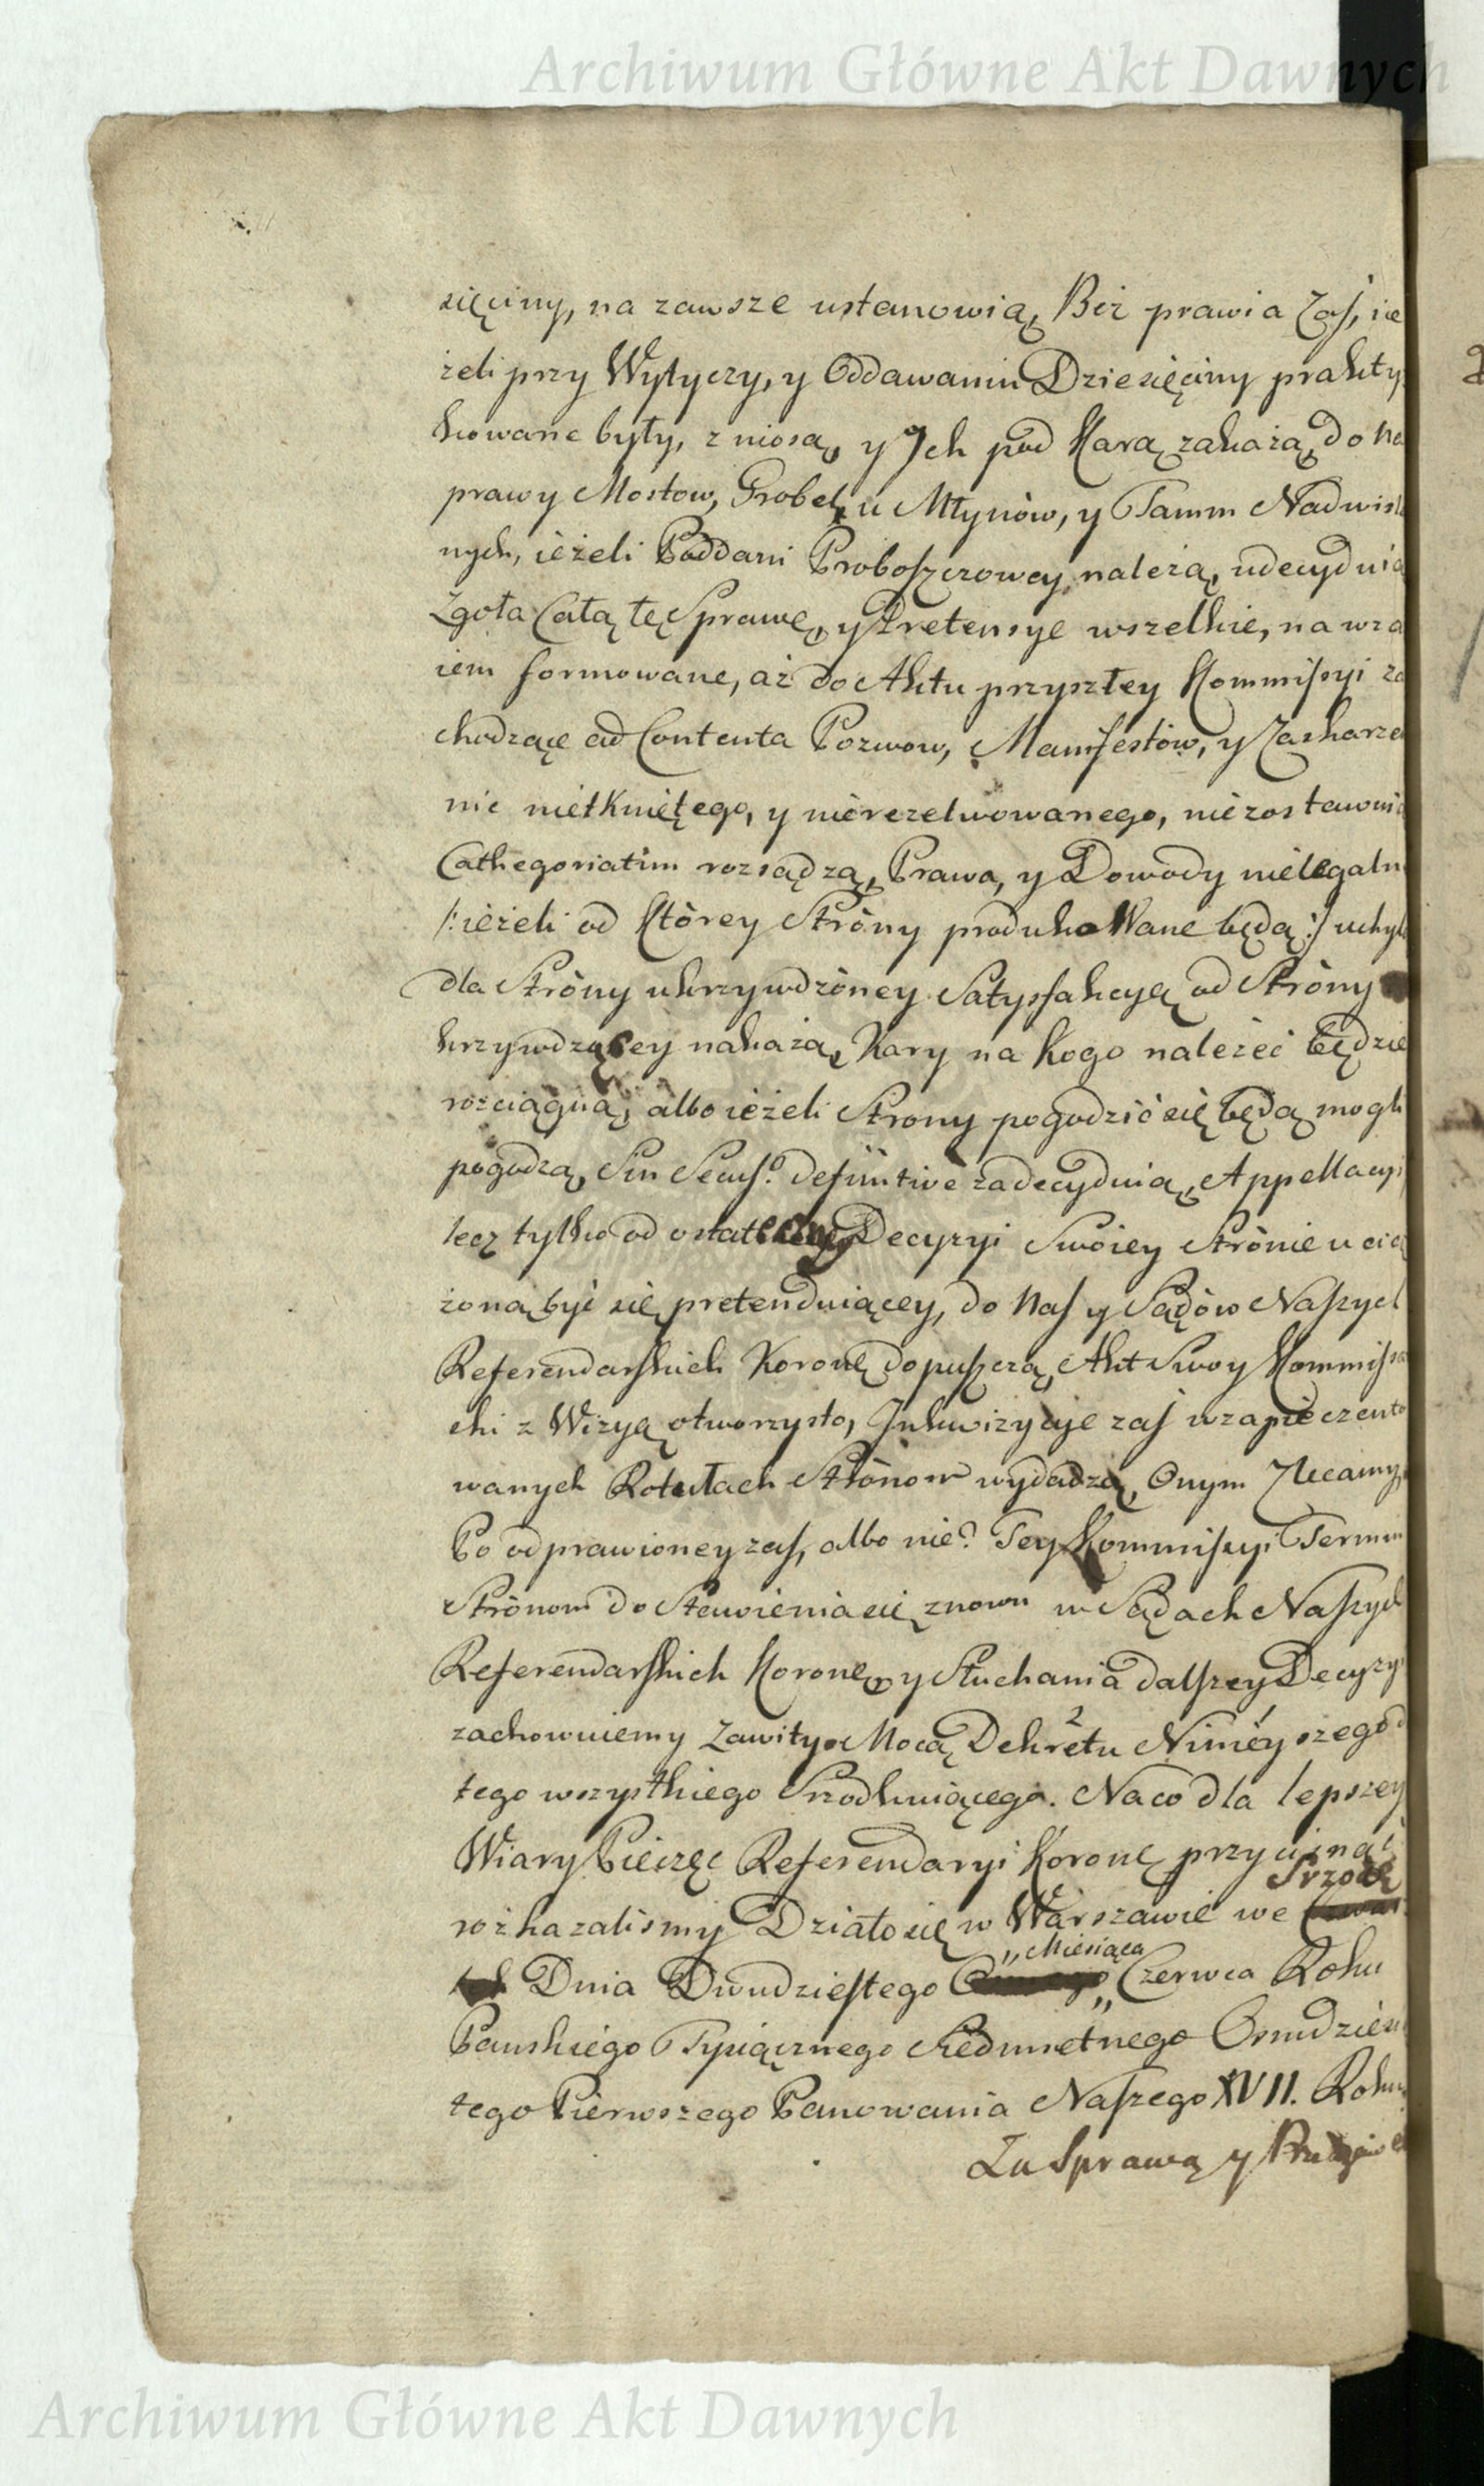 Archiwum Główne Akt Dawnych
sięciny, na zawsze ustanowią, Bez prawia Zaś, ie
żeli przy Wytyczy, y Oddawaniu Dziesięciny prakty
kowane były, zniosą, y Jch pod Karą zakażą, do Na
prawy Mostow, Grobel, u Młynów, y Tamm Nadwiśl
nych, ieżeli Poddani Proboszczowcy, należą, udecyduią
Zgoła Całą tę Sprawę, y Pretensye wszelkie, na wza
iem formowane, aż do Aktu przyszłey Kommissyi za
chodzące ad Contenta Pozwow, Manifestów, y Zaskarże
nic nietkniętego, y nierezelwowanego, niezostawuią
Cathegoriatim rozsądzą, Prawa, y Dowody nielegaln
/:ieżeli od Którey Stróny produkowane będą:/ uchyl
dla Stróny ukrzywdzóney Satysfakcyą od Stróny
krzywdzącey nakażą, Kary na Kogo należeć będzie
rozciągną, albo ieżeli Strony pogodzić się będą mogli
pogodzą, Sin Secus. definitive zadecyduią, Appellacyi
lecz tylko od ostateczney Decyzyi Swóiey Strónie ucią
żoną być się pretenduiącey, do Nas y Sądów Naszych
Referendarskich Koronę dopuszczą, Akt Swoy Kommissa
ski z Wizyą otworzysto, Jnkwizycye zaś w zapieczento
wanych Rotułach Strónom wydadzą, Onym Zlecamy,
Po odprawioney zaś, albo nie? Tey Kommissyi Termin
Strónom do Stawienia się znowu w Sądach Naszych
Referendarskich Koronę, y Słuchania dalszey Decyzyi
zachowuiemy Zawity, Mocą Dekretu Ninieyszego
tego wszystkiego Srzodkuiącego. Na co dla lepszey
Wiary Pieczęć Referendaryi Koronę przycisnąć
rozkazalismy Działo się w Warszawie we Srzodę
Dnia Dwudziestego Miesiąca Czerwca Roku
Panskiego Tysiącznego Siedmsetnego Osmdziesi
tego Pierwszego Panowania Naszego XVII. Roku
Za Sprawą y
Archiwum Główne Akt Dawnych